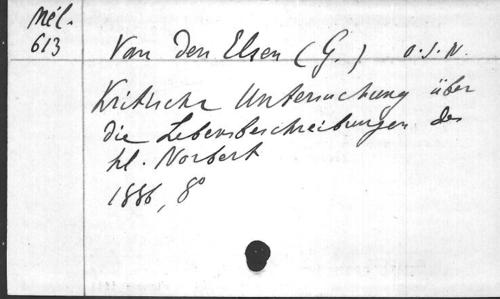 Mél.
613
Van den Elsen (G.) O.S.N.
Kritische Untersuchung über
die Lebensbeschreibungen des
hl. Norbert
1886, 8º